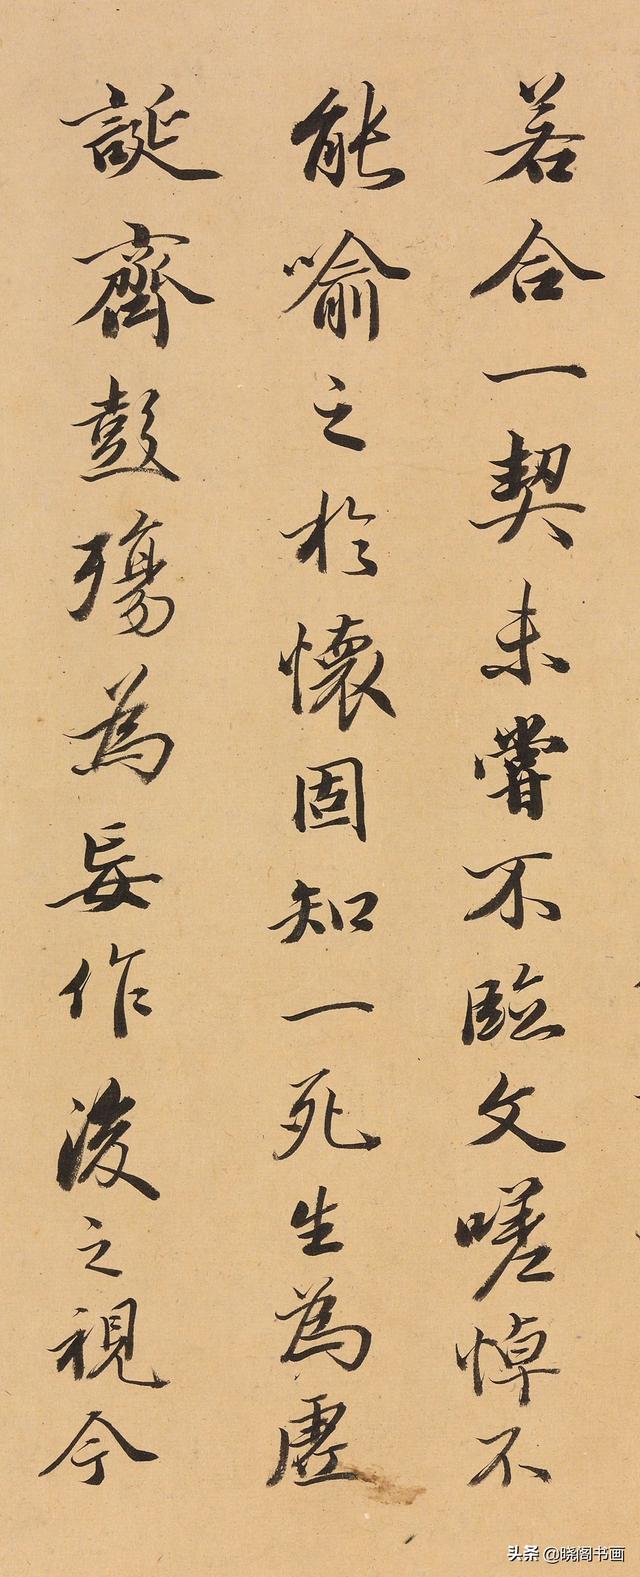 若合一契未嘗不臨文嗟悼不
能喻之於懷固知一死生為虛
誕齊彭殤為妄作後之視今
头条 @晓阁书画